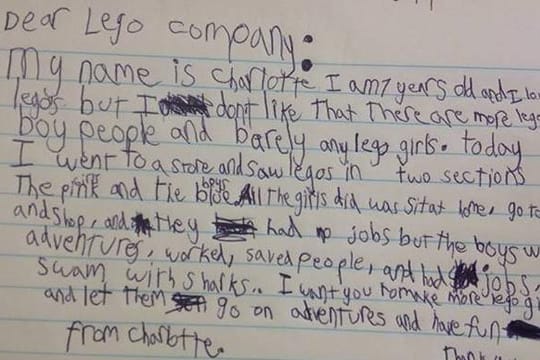 Dear Lego company:
My name is Charlotte I am 7 years old and I lo
legos but I dont like that There are more lego
boy people and barely any lego girls. today
I went to a store and saw legos in two sections
The pink girls and the blue boys All the girls did was sit at home, go to
and shop, and they had no jobs but the boys w
adventures, worked, saved people, and had jobs,
swam with sharks.. I want you to make more lego gi
and let them go on adventures and have fun
from charlotte.
Thank